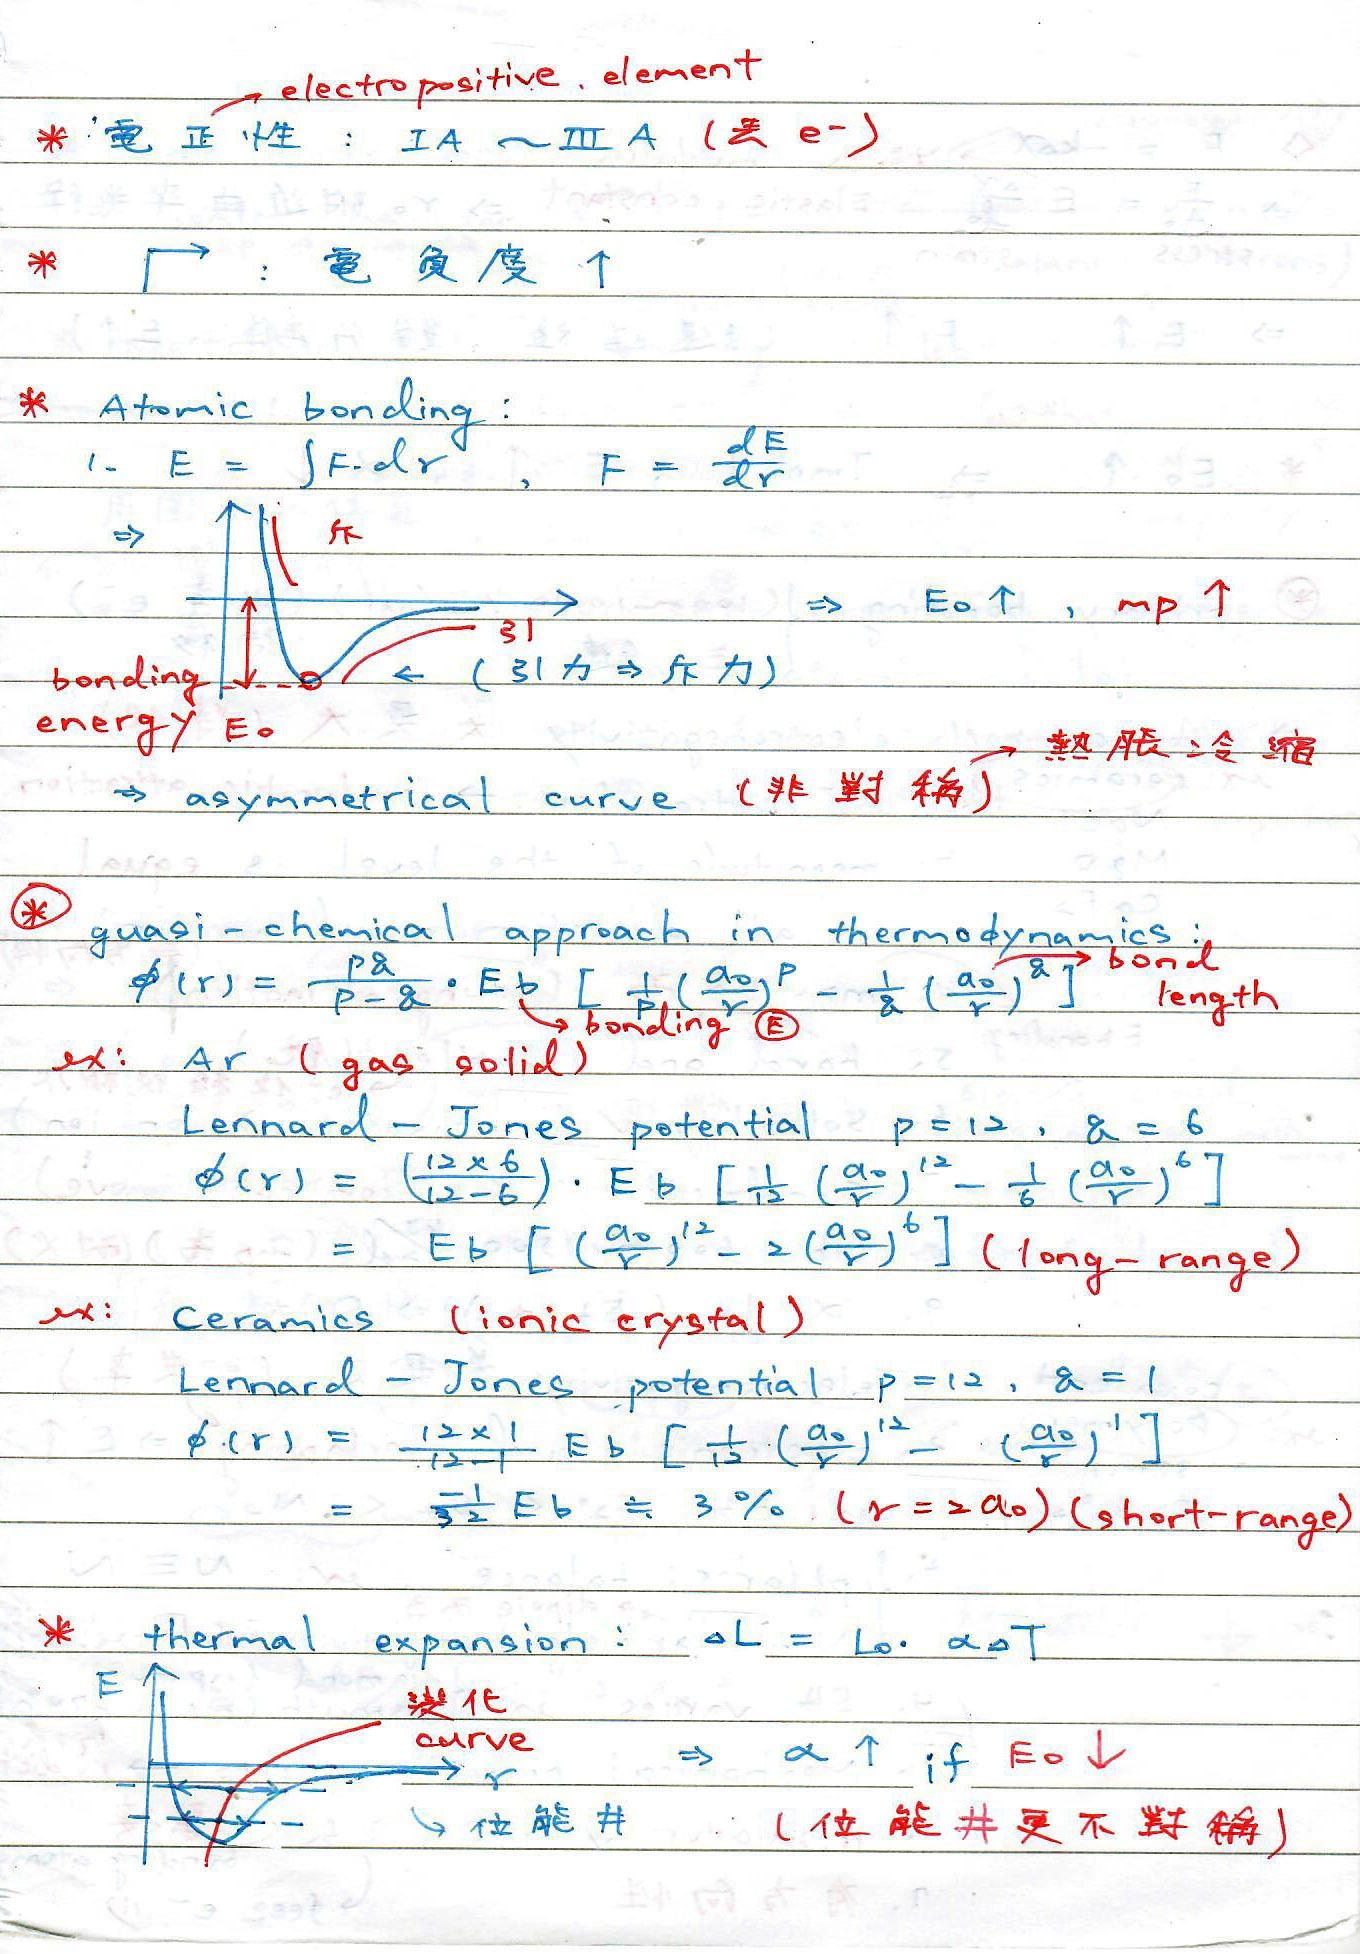 electropositive. element
* 電正性 : IA ~ IIIA (丟 e-)
* : 電負度 ↑
* Atomic bonding :
1. E = ∫F·dr , F = dE/dr
⇒ 斥
⇒ E₀ ↑ , mp ↑
引
← (引力 ⇒ 斥力)
bonding energy E₀
熱脹冷縮
⇒ asymmetrical curve (非對稱)
* quasi-chemical approach in thermodynamics :
φ(r) = pq/(p-q) · Eb [ 1/p (a₀/r)^p - 1/q (a₀/r)^q ] → bond length
→ bonding E
ex: Ar (gas solid)
Lennard-Jones potential p=12, q=6
φ(r) = (12×6/12-6) · Eb [ 1/12 (a₀/r)^12 - 1/6 (a₀/r)^6 ]
= Eb [ (a₀/r)^12 - 2 (a₀/r)^6 ] (long-range)
ex: Ceramics (ionic crystal)
Lennard-Jones potential p=12, q=1
φ(r) = 12×1/12-1 Eb [ 1/12 (a₀/r)^12 - (a₀/r)^1 ]
= -1/32 Eb ≒ 3% (r=2a₀) (short-range)
* thermal expansion : ΔL = L₀·αΔT
E
變化
curve
r
⇒ α ↑ if E₀ ↓
位能井
(位能井更不對稱)